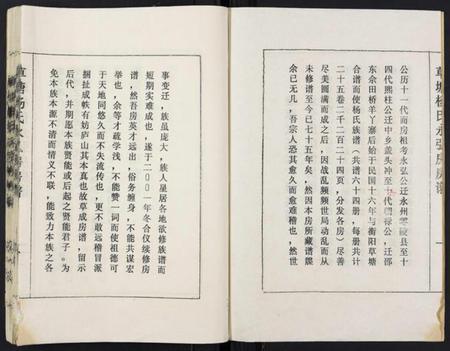 草塘杨氏永弘房房谱
公历十一代而房祖考永弘公迁永州零陵县至十
四代熊柱公迁中乡盖头冲至十代朝禄公,迁邵
东余田桥羊丫寨后始于民国十六年与衡阳草塘
合谱而使杨氏族谱(共谱六十四册,每册共计
二十五卷二千二百二十四页,分发各房)尽善
尽美圆满而成之后,因战乱频频世局动乱而从
未修谱至今已七十五年矣,然因本房所藏谱牒
余已无几,吾宗人恐其愈久而愈难稽也,然世
事变迁,族虽庞大,族人星居各地欲修族谱而
短期实难成也,遂于二00一年冬合仪续修房
谱,然吾房英才远出,俗务缠身,不能共谋宏
举也,余等才疏学浅,不能赞一词而使祖德可
于天地同悠久而不失流传也,更不敢远稽冒派
捆扯成帙有妨庐山其本真也故草成房谱,留示
后代,并期愿本族贤能或后起之贤能君子。为
免本族本源不清而情义不联,能致力本族之各